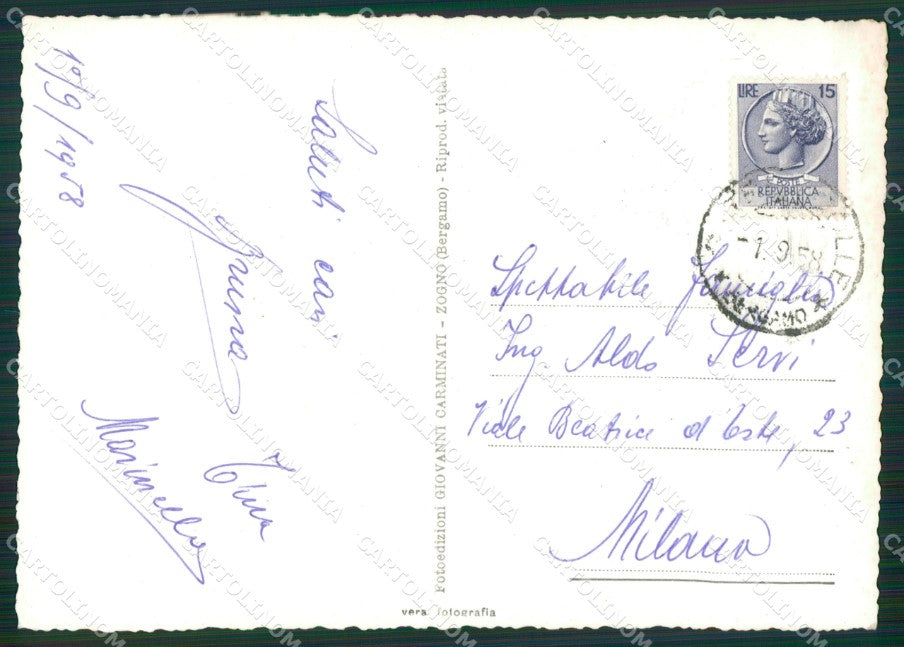 1º/9/1958
Saluti cari
Bruna
Tina
Marinella
Fotoedizioni GIOVANNI CARMINATI - ZOGNO (Bergamo) - Riprod. vietata
vera fotografia
LIRE 15
POSTE
REPVBBLICA
ITALIANA
-1.9.58
BERGAMO
Spettabile famiglia
Ing. Aldo Servi
Viale Beatrice d'Este, 23
Milano
CARTOLINOMANIA